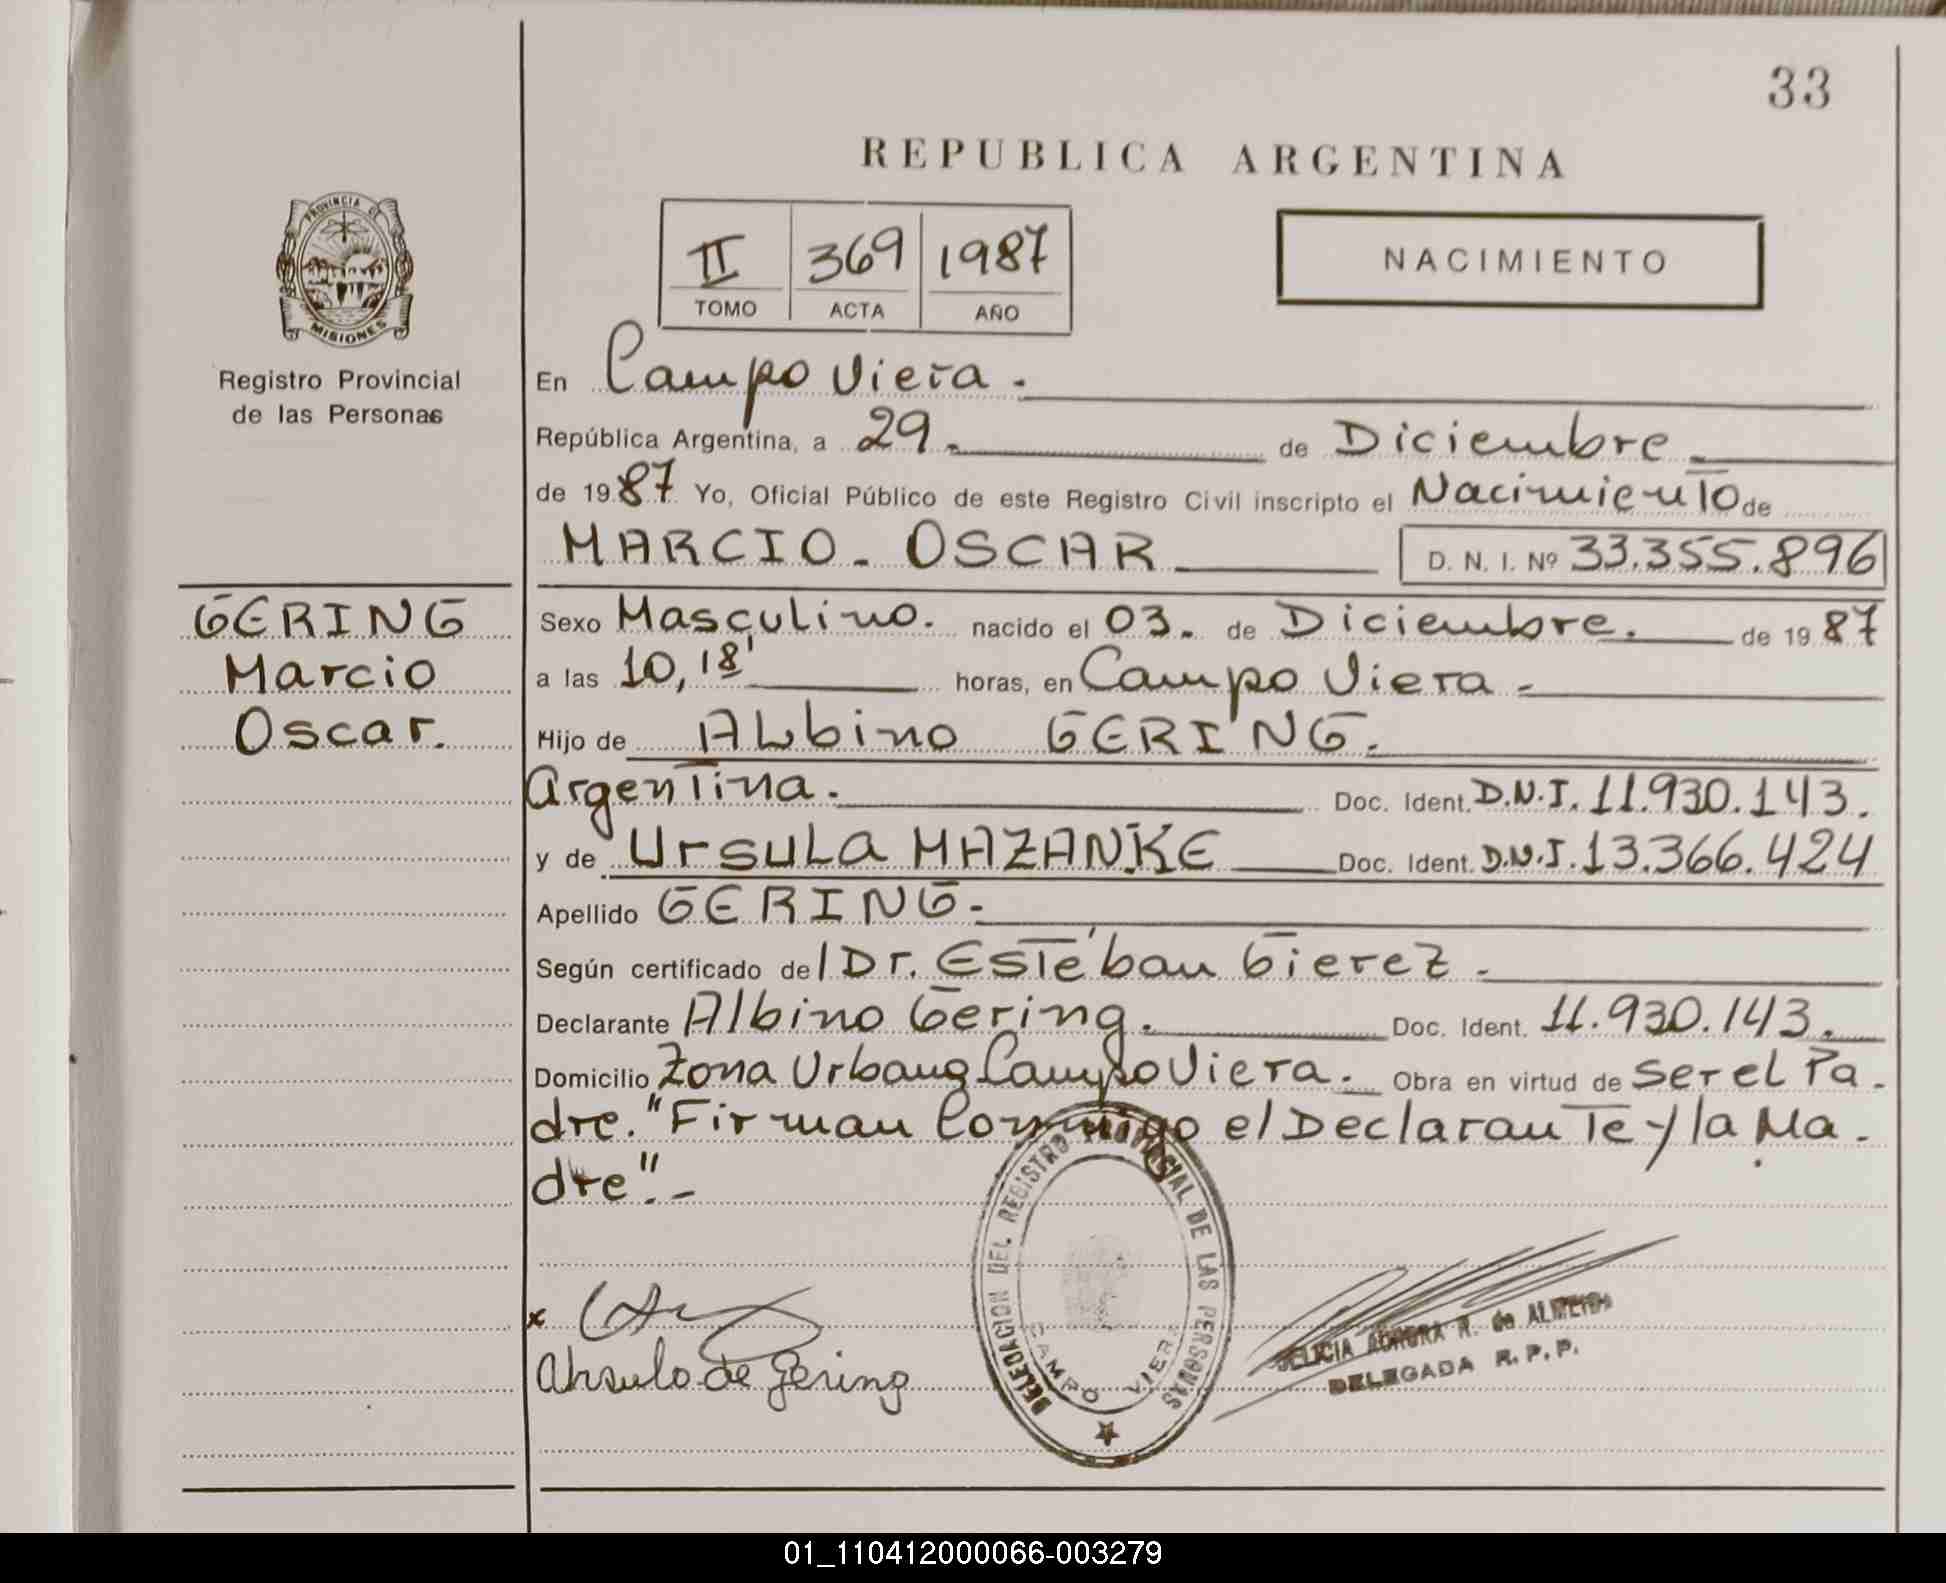 33
REPUBLICA ARGENTINA
PROVINCIA DE
MISIONES
Registro Provincial
de las Personas
II 369 1987
TOMO ACTA AÑO
NACIMIENTO
En Campo Viera.
República Argentina, a 29. de Diciembre
de 1987 Yo, Oficial Público de este Registro Civil inscripto el Nacimiento de
MARCIO - OSCAR D. N. I. Nº 33.355.896
GERING
Marcio
Oscar.
Sexo Masculino. nacido el 03. de Diciembre. de 1987
a las 10,18' horas, en Campo Viera -
Hijo de Albino GERING.
Argentina. Doc. Ident. D.N.I. 11.930.143.
y de Ursula MAZANKE Doc. Ident. D.N.I. 13.366.424
Apellido GERING.
Según certificado del Dr. Estéban Gierez -
Declarante Albino Gering. Doc. Ident. 11.930.143.
Domicilio Zona Urbana Campo Viera. Obra en virtud de Ser el Pa-
dre. "Firman Conmigo el Declarante y la Ma-
dre".-
x
de Gering
DELEGACION DEL REGISTRO PROVINCIAL DE LAS PERSONAS
CAMPO VIERA
AURORA R. de ALMEIDA
DELEGADA R.P.P.
01_110412000066-003279